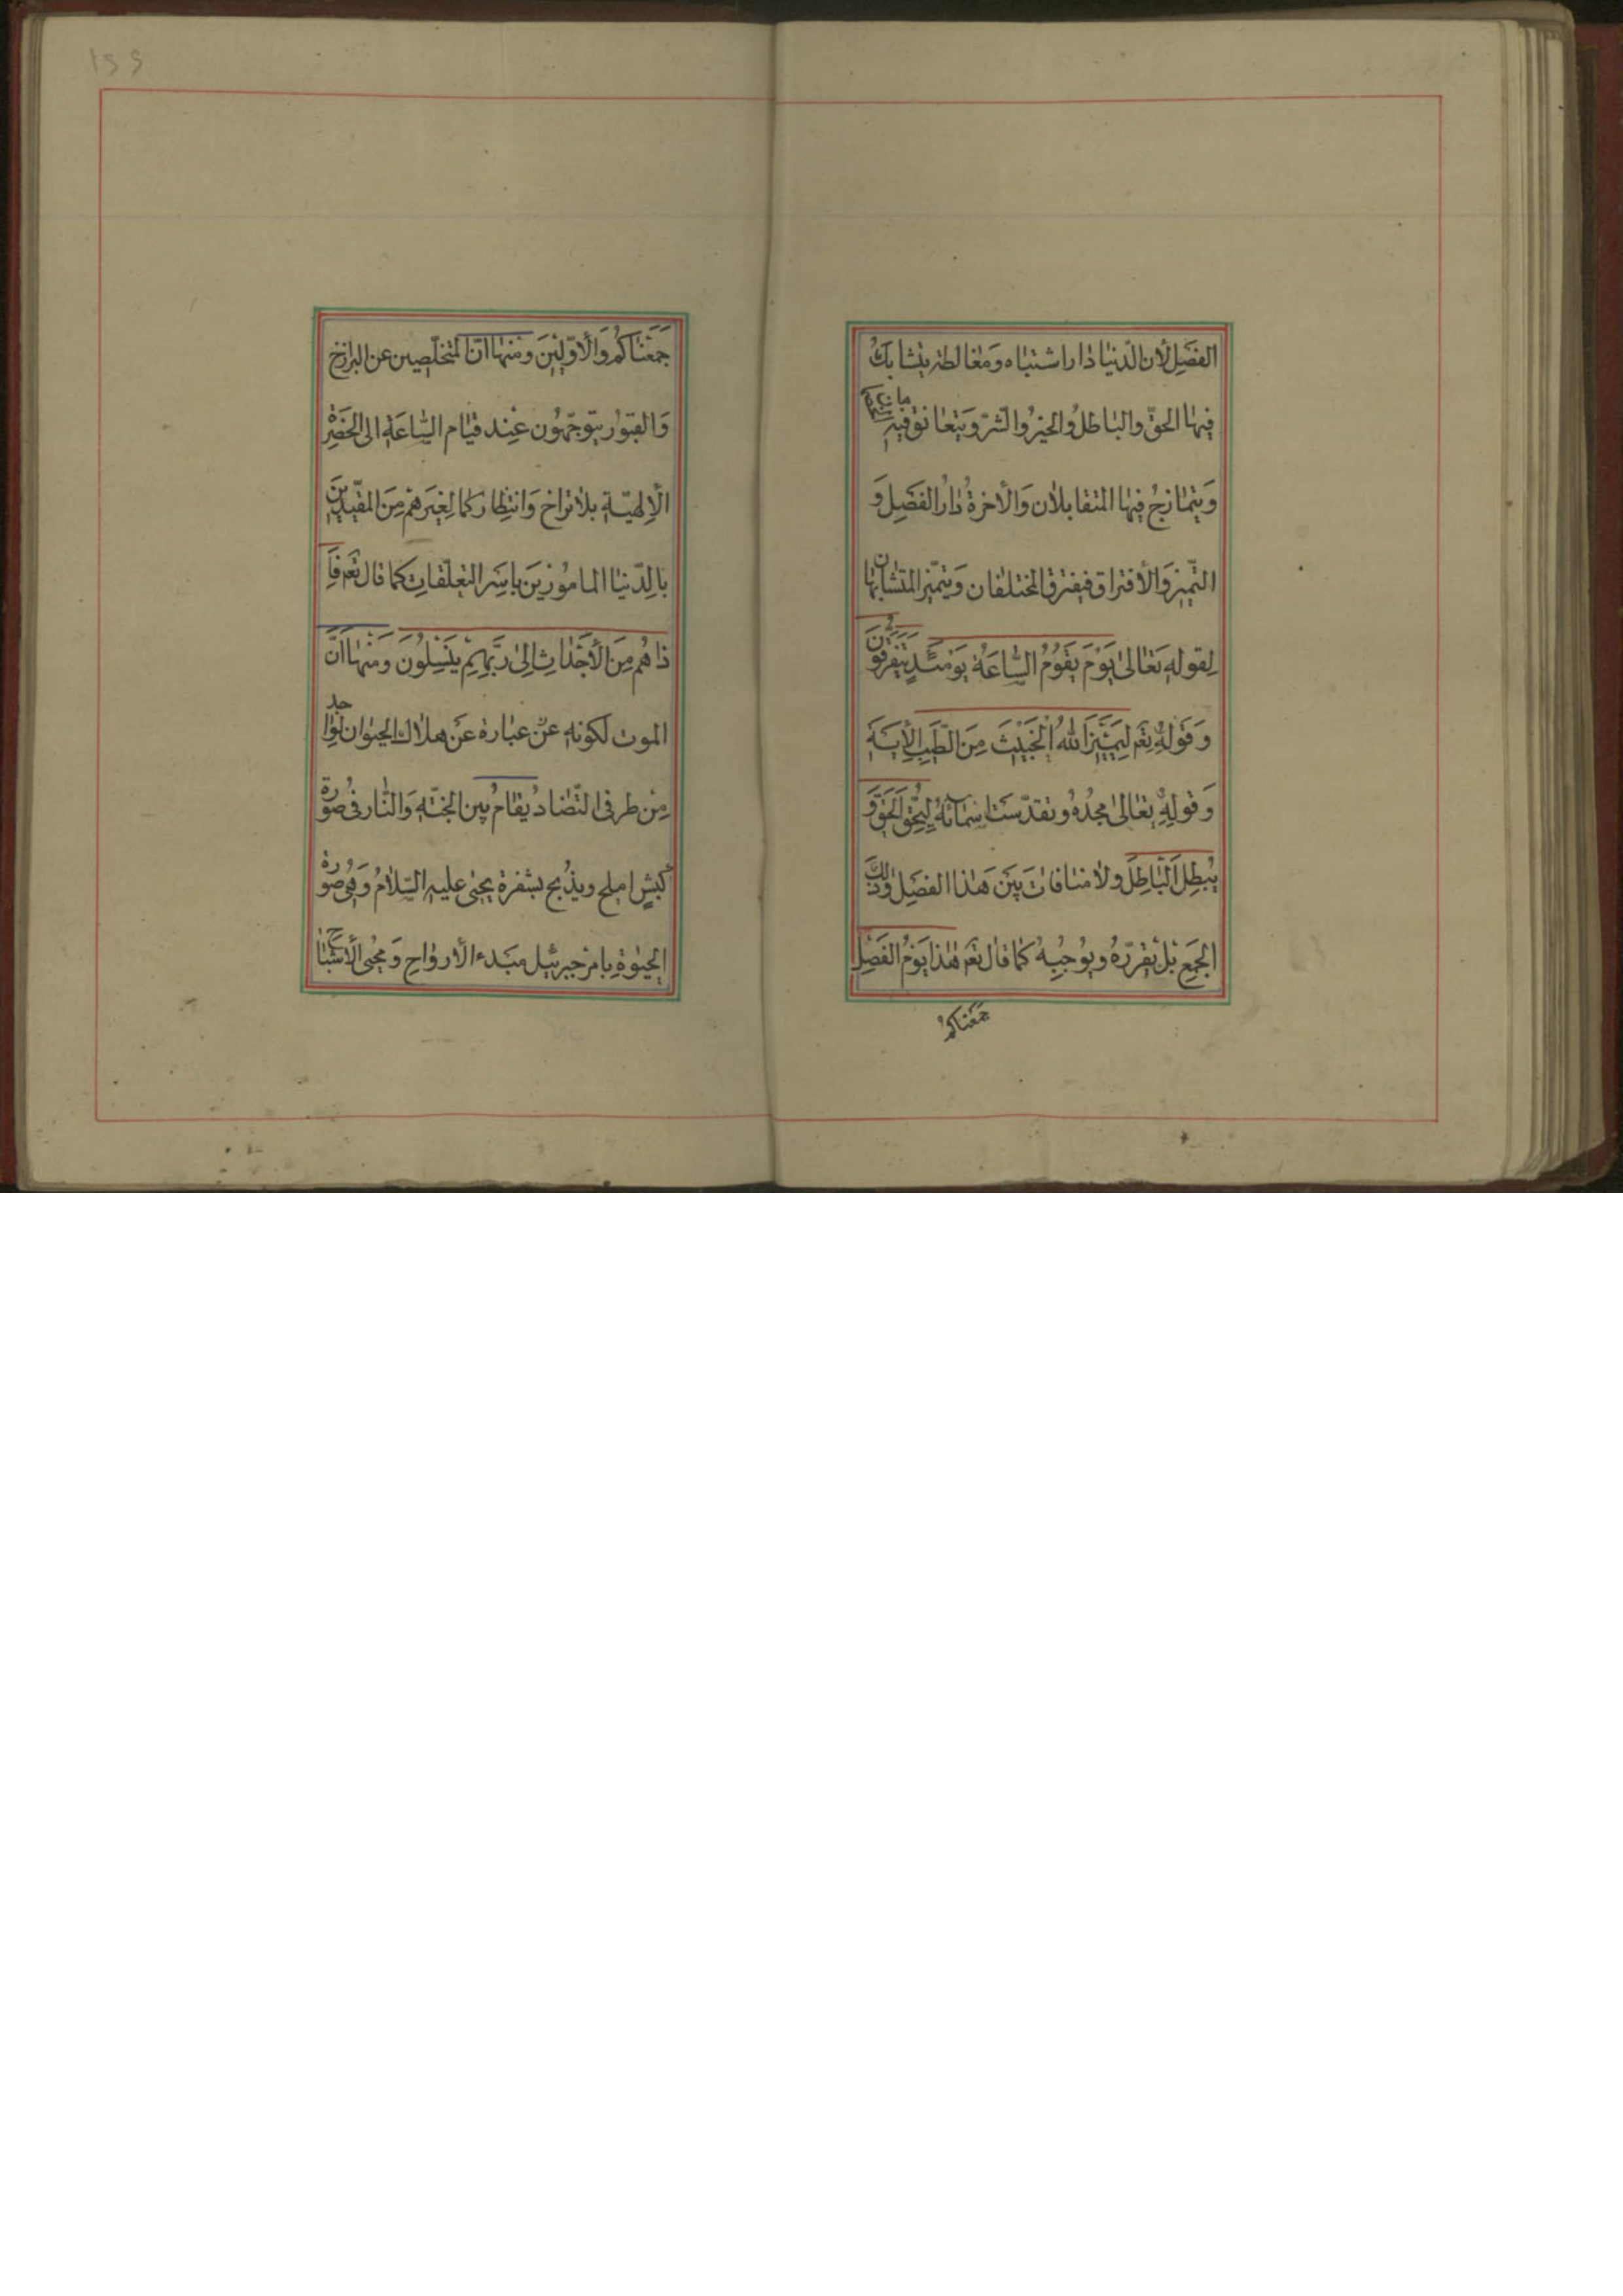 الفَصْلِ لأن الدّنيا دار اشتباه ومغالطة يتشابك
فيها الحقّ والباطلُ والخيرُ والشّر ويتعانق فيه
ويتمازجُ فيها المتقابلان والأخرةُ دارُ الفَصْلِ و
التّميز والأفتراق فيفترق المختلفان ويتميّز المتشابهان
لقوله تعالى يَوْمَ يَقُومُ السّاعَةُ يَوْمئذٍ يَتَفَرَّقُونَ
وَقَوْلِهِ تَعَ لِيَمِيْزَ اللهُ الْخَبِيْثَ مِنَ الطَّيِّبِ الأية
وَقولِهِ تعالى مجدُهُ وتقدّسَت اسمائهُ لِيُحِقَّ الْحَقَّ وَ
يُبْطِلَ الْبَاطِلَ ولا منافاتَ بَيْنَ هَذا الفصلِ وذلكَ
الجمعِ بَل يُقرّرهُ ويُوجِبُهُ كما قال تَعَ هٰذا يَوْمُ الفَصْلِ
جمعناكم
جَمَعْنَاكُمْ وَالأَوّلِيْنَ ومنها انّ المتخلّصين عن البرازخ
وَالقبُور يتوجّهُون عِند قيام السّاعَةِ الى الحَضْرَةِ
الْإِلهيّة بلا تراخ وَانتظار كما لِغَيرِهم مِنَ المقيّدين
بالدّنيا المأسُورين بأسر التعلّقاتِ كما قال تَعَ فَاِ
ذا هُم مِنَ الأَجْدَاثِ اِلى رَبِّهِمْ يَنْسِلُونَ ومنها انَّ
الموت لكونهِ عبارة عَن هلاك الحيوان
مِن طرفى التّضاد يُقامُ بين الجنّة وَالنّار فى صُورة
كبشٍ املح ويذبح بشفرة يحيى عليه السّلامُ وَهِىَ صُورة
الحيٰوةِ بامر جبرئيل مبدء الأرواح وَمحيى الأشباح